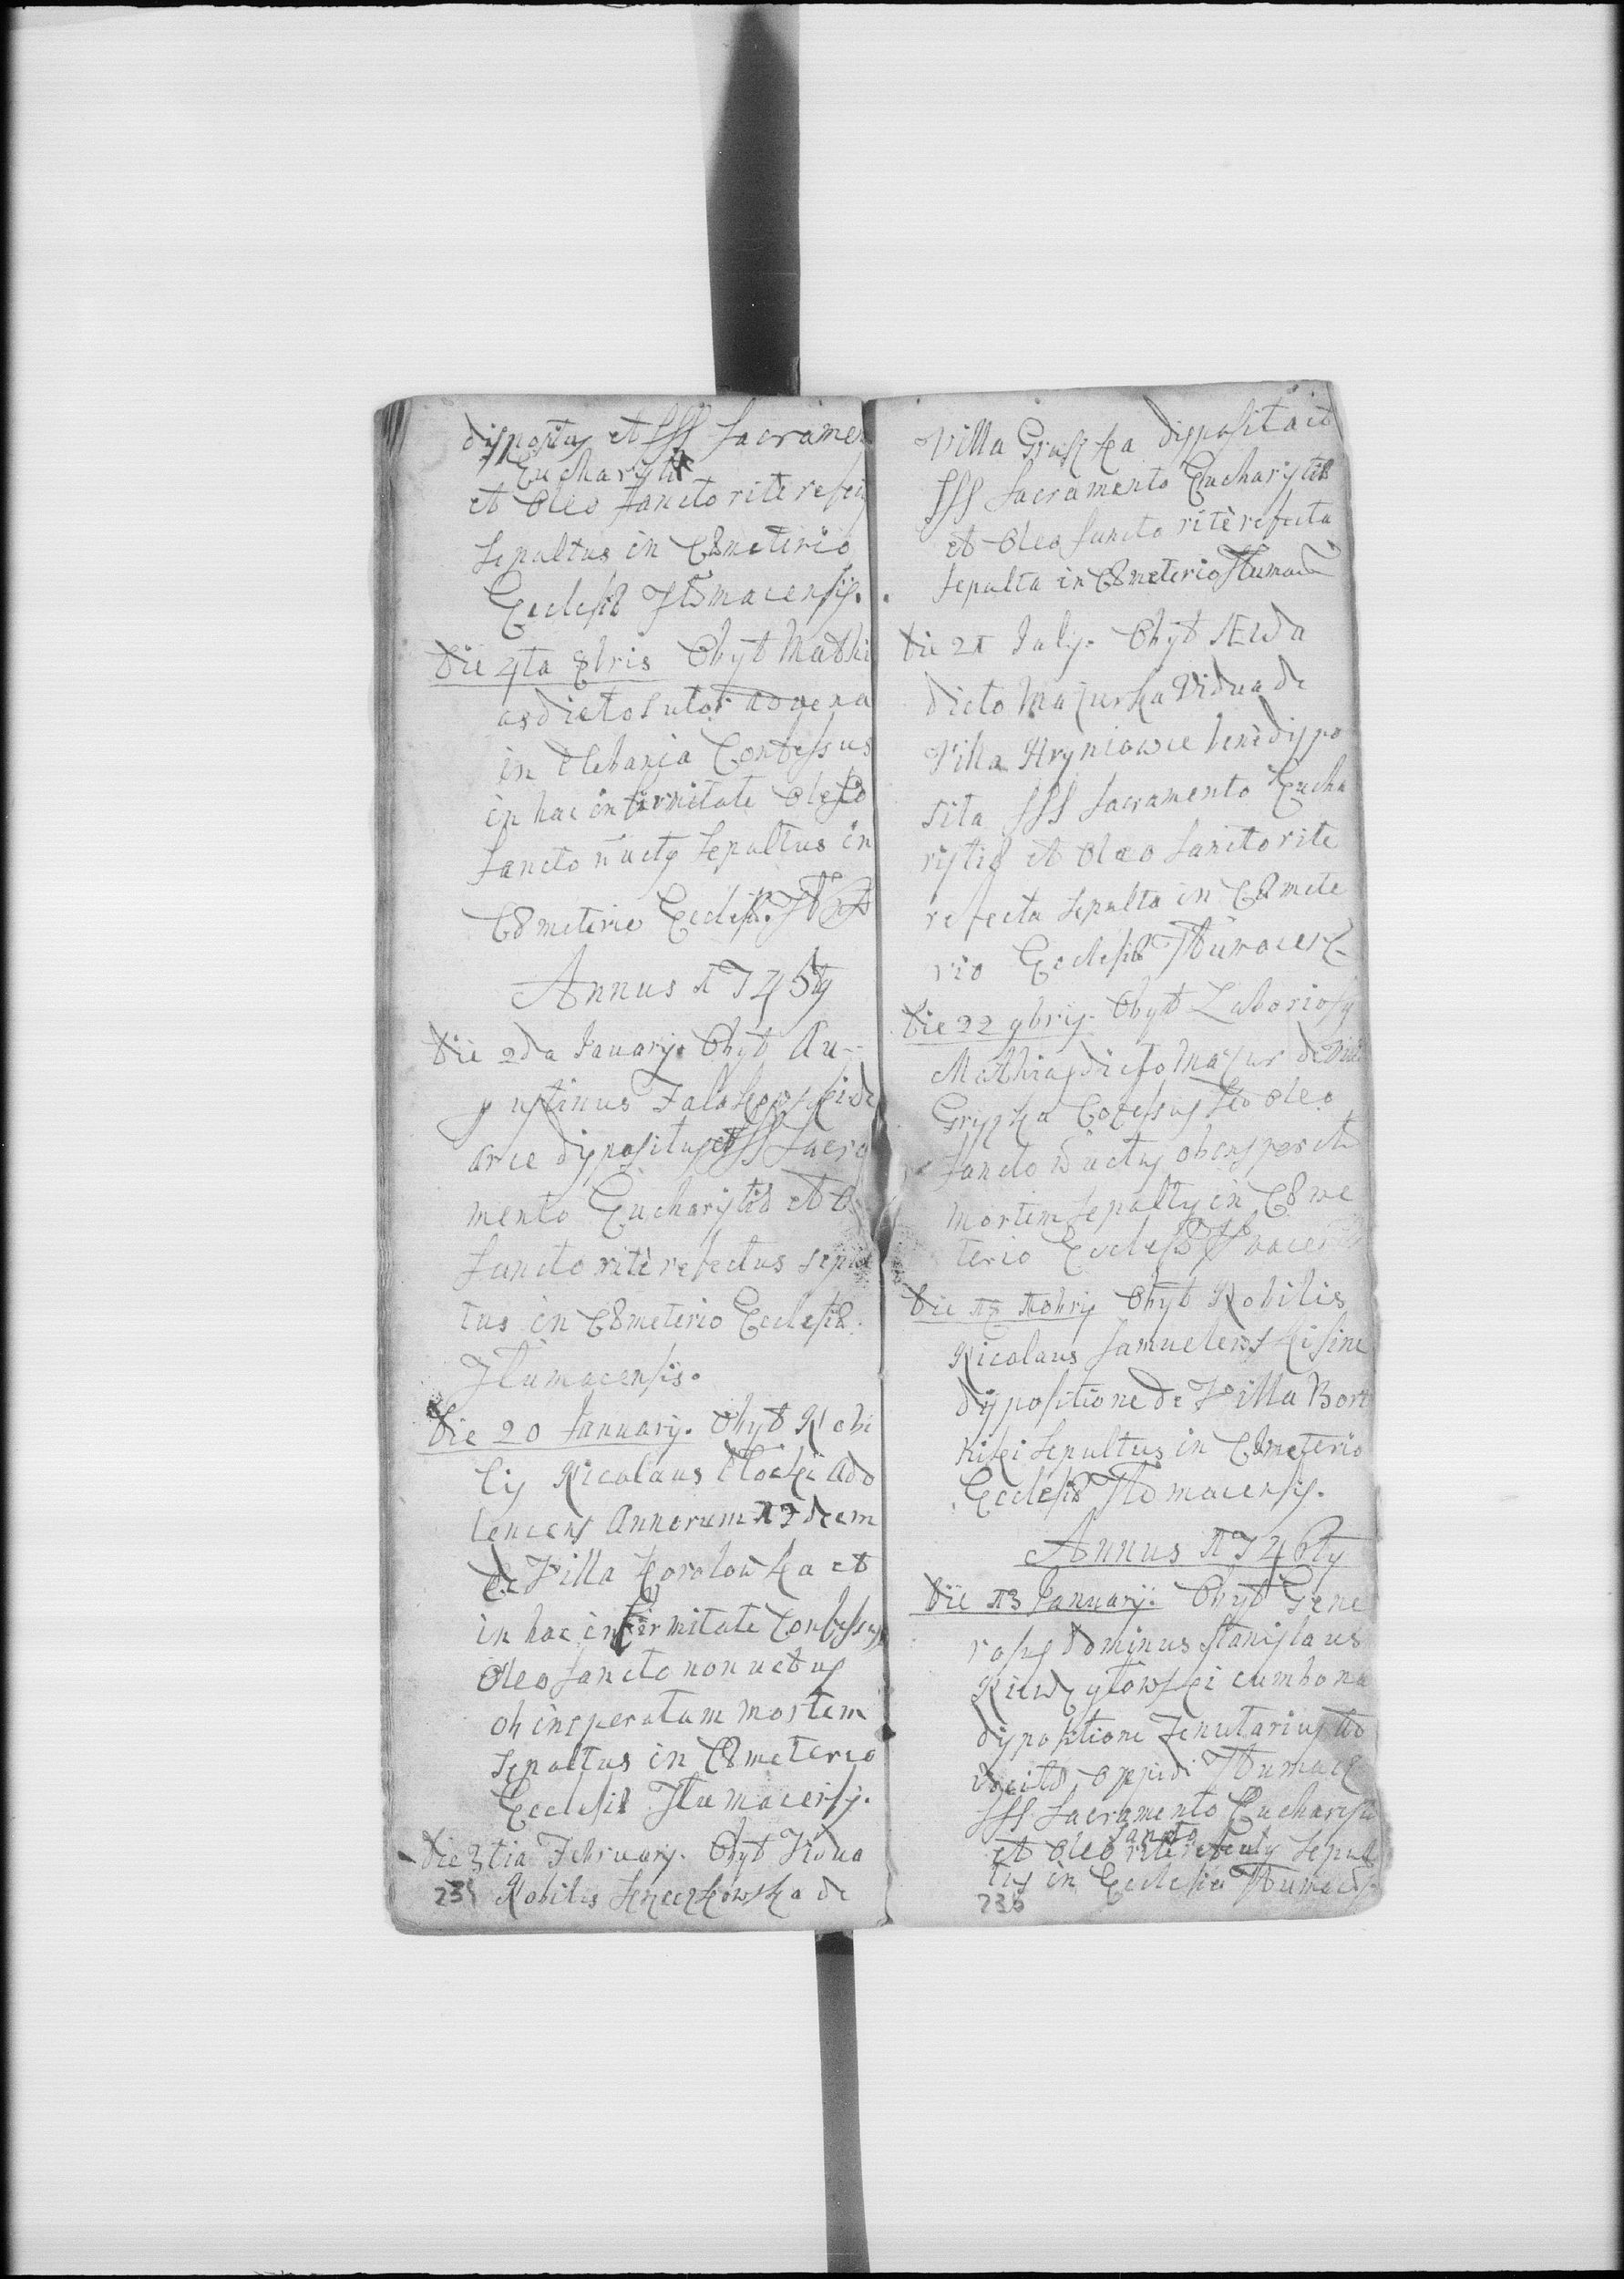 dispositus et SSS Sacramen
Eucharistiæ
et Oleo Sancto rite refec
Sepultus in Cœmeterio
Ecclesiæ Tłomacensis.
Die 4ta 8bris Obyt Mathi
as dicto Sutor advena
in Plebania Confessus
in hac infirmitate Oleo
Sancto uctus Sepultus in
Cœmeterio Ecclesiæ
Annus 1745ty
Die 2da January. Obyt Au-
gustinus de
arce dispositus et SSS Sacra
mento Eucharistiæ et O
Sancto ritè refectus sepul
tus in Cœmeterio Ecclesiæ
Tłumacensis.
Die 20 January. Obyt Nobi
lis Nicolaus Płocki ado
lencens Annorum 17decem
de Villa Korolowka et
in hac infirmitate Confessus
Oleo Sancto non uctus
ob insperatam mortem
Sepultus in Cœmeterio
Ecclesiæ Tłumacensis.
Die 3tia February. Obyt Vidua
Nobilis de
235
Villa Gruszka disposita et
SSS Sacramento Eucharistiæ
et Oleo Sancto ritè refecta
Sepulta in Cœmeterio Tłumac
Die 21 July. Obyt Ewa
dicto Mazurka Vidua de
Villa Hryniowce benè dispo
sita SSS Sacramento Eucha
ristiæ et Oleo Sancto rite
refecta Sepulta in Cœmete
rio Ecclesiæ Tłumacens
Die 22 9bris. Obyt Laboriosus
Mathias dicto Mazur de Villa
Gruszka Confessus sed Oleo
Sancto uctus ob insperatã
mortem Sepultus in Cœme
terio Ecclesiæ
Die 18 Xbris Obyt Nobilis
Nicolaus Samuelewski sine
dispositione de Villa Bort
niki Sepultus in Cœmeterio
Ecclesiæ Tłomacensis.
Annus 1746ty
Die 13 January. Obyt Gene
rosus Dominus Stanislaus
cum bona
dispositione Tenutarius
oppidi Tłumacz
SSS Sacramento Eucharistiæ
Sancto
et Oleo rite refectus Sepul
tus in Ecclesia Tłumacens
236